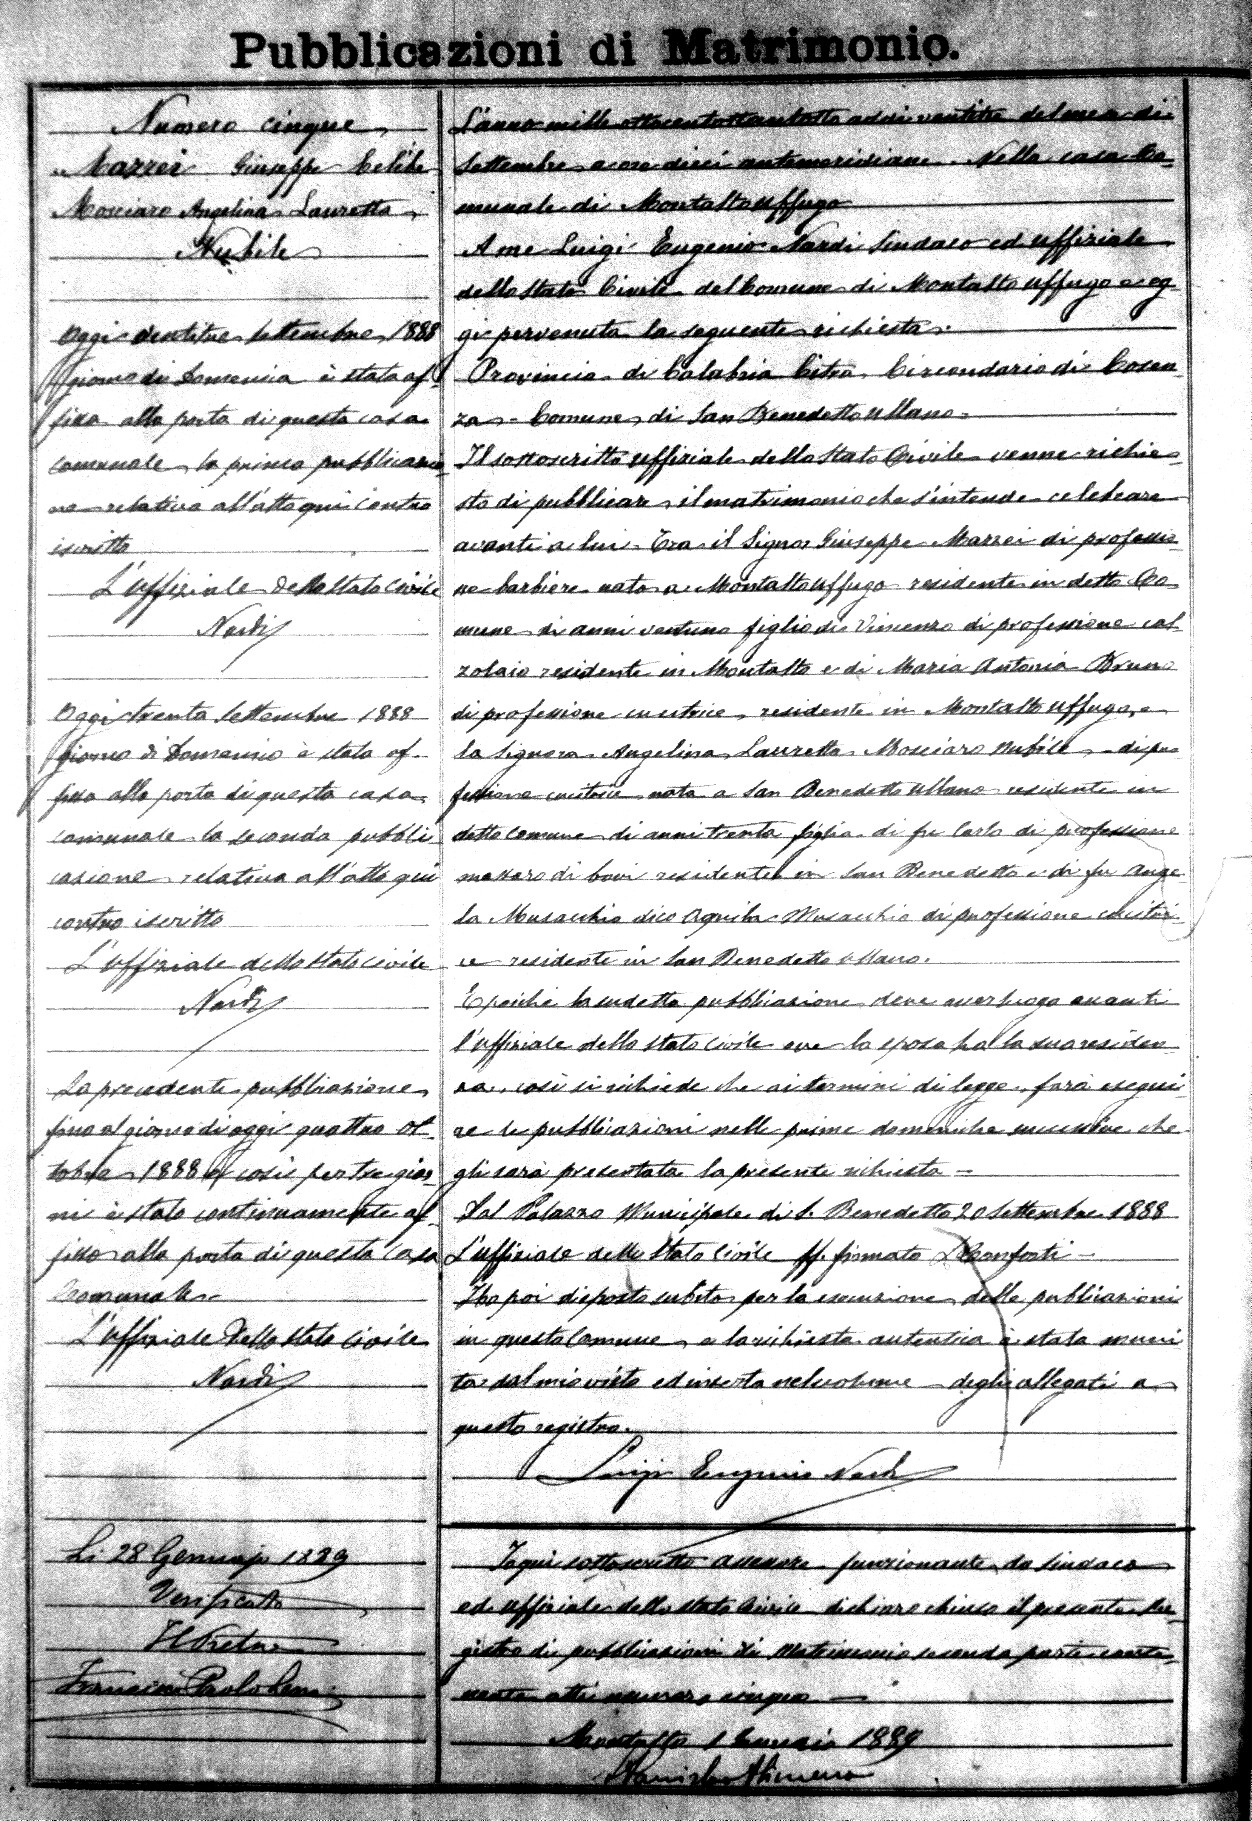 Pubblicazioni di Matrimonio.
Numero cinque
Mazzei Giuseppe Celibe
Mosciaro Angelina Lauretta
Nubile
Oggi ventitre settembre 1888
giorno di Domenica è stata af
fissa alla porta di questa casa
comunale la prima pubblicazio
ne relativa all'atto qui contro
iscritto
L'uffiziale dello stato Civile
Nardi
Oggi trenta settembre 1888
giorno di Domenica è stata af-
fissa alla porta di questa casa
comunale la seconda pubbli
cazione relativa all'atto qui
contro iscritto
L'uffiziale dello stato civile
Nardi
La precedente pubblicazione
fino al giorno di oggi quattro ot-
tobre 1888 e così per tre gior
ni è stata continuamente af-
fissa alla porta di questa casa
Comunale
L'uffiziale dello stato Civile
Nardi
Li 28 Gennajo 1889
Verificato
Il Pretore
L'anno mille ottocentottantotto addì ventitre del mese di
settembre a ore dieci antemeridiane. Nella casa Co-
munale di Montalto uffugo
A me Luigi Eugenio Nardi Sindaco ed uffiziale
dello stato Civile del Comune di Montalto uffugo è og-
gi pervenuta la seguente richiesta.
Provincia di Calabria Citra Circondario di Cosen-
za - Comune di San Benedetto ullano -
Il sottoscritto uffiziale dello stato Civile venne richie-
sto di pubblicare il matrimonio che s'intende celebrare
avanti a lui - Tra il Signor Giuseppe Mazzei di professio-
ne barbiere nato a Montalto uffugo residente in detto Co
mune di anni ventuno figlio di Vincenzo di professione cal-
zolaio residente in Montalto e di Maria Antonia Bruno
di professione cucitrice residente in Montalto uffugo, e
la Signora Angelina Lauretta Mosciaro nubile - di pro
fessione cucitrice nata a San Benedetto ullano residente in
detto comune di anni trenta figlia di fu Carlo di professione
massaro di bovi residente in San Benedetto e di fu Ange-
la Musacchio dico Aquila Musacchio di professione cucitri
ce residente in San Benedetto ullano.
E poichè la sudetta pubblicazione deve aver luogo avanti
l'uffiziale dello stato civile ove la sposa ha la sua residen-
za, così si richiede che ai termini di legge, farà esegui
re le pubblicazioni nelle prime domeniche successive che
gli sarà presentata la presente richiesta -
Dal Palazzo Municipale di S. Benedetto 20 settembre 1888
L'uffiziale dello stato Civile ff. firmato Conforti -
Ho poi disposto subito per la esecuzione delle pubblicazioni
in questo Comune e la richiesta autentica è stata muni
ta dal mio visto ed inserta nel volume degli allegati a
questo registro.
Luigi Eugenio Nardi
Io qui sottoscritto assessore funzionante da sindaco
ed uffiziale dello stato Civile dichiaro chiuso il presente Re-
gistro di pubblicazioni di Matrimonio seconda parte conte-
nente atti numero cinque
Montalto 1 Gennaio 1889